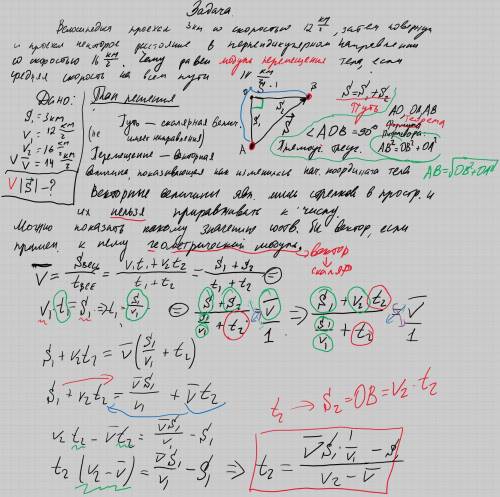 Задача.
Велосипедист проехал 3км со скоростью 12 км/ч, затем повернул
и проехал некоторое расстояние в перпендикулярном направлении
со скоростью 16 км/ч. Чему равен модуль перемещения тела, если
средняя скорость на всём пути 14 км/ч
Дано:
S₁ = 3км
V₁ = 12 км/ч
V₂ = 16 км/ч
V̅ = 14 км/ч
V |S⃗| - ?
План решения
Путь – скалярная велич.
(не имеет направления)
Перемещение – векторная
величина, показывающая как изменилась нач. координата тела
O
B
A
S₂
S₁
S⃗
S = S₁ + S₂
Путь
∠AOB = 90°
Прямоуг. треуг.
AO, OB, AB
Теорема
Пифагора:
AB² = OB² + OA²
AB = √OB² + OA²
Векторные величины явл. лишь стрелкой в простр. и
их нельзя приравнивать к числу.
Можно показать какому значению соотв. бы вектор, если
примен. к нему геометрический модуль.
вектор
↓
скаляр
V̅ = Sвесь / tвсе = (V₁t₁ + V₂t₂) / (t₁ + t₂) = (S₁ + S₂) / (t₁ + t₂) =
V₁t₁ = S₁ ⇒ t₁ = S₁/V₁ = (S₁ + S₂) / (S₁/V₁ + t₂) = V̅/1 ⇒ (S₁ + V₂t₂) / (S₁/V₁ + t₂) = V̅/1
S₁ + V₂t₂ = V̅ (S₁/V₁ + t₂)
S₁ + V₂t₂ = V̅S₁/V₁ + V̅t₂
t₂ → S₂ = OB = V₂ · t₂
V₂t₂ - V̅t₂ = V̅S₁/V₁ - S₁
t₂ (V₂ - V̅) = V̅S₁/V₁ - S₁ ⇒ t₂ = (V̅S₁ · 1/V₁ - S₁) / (V₂ - V̅)